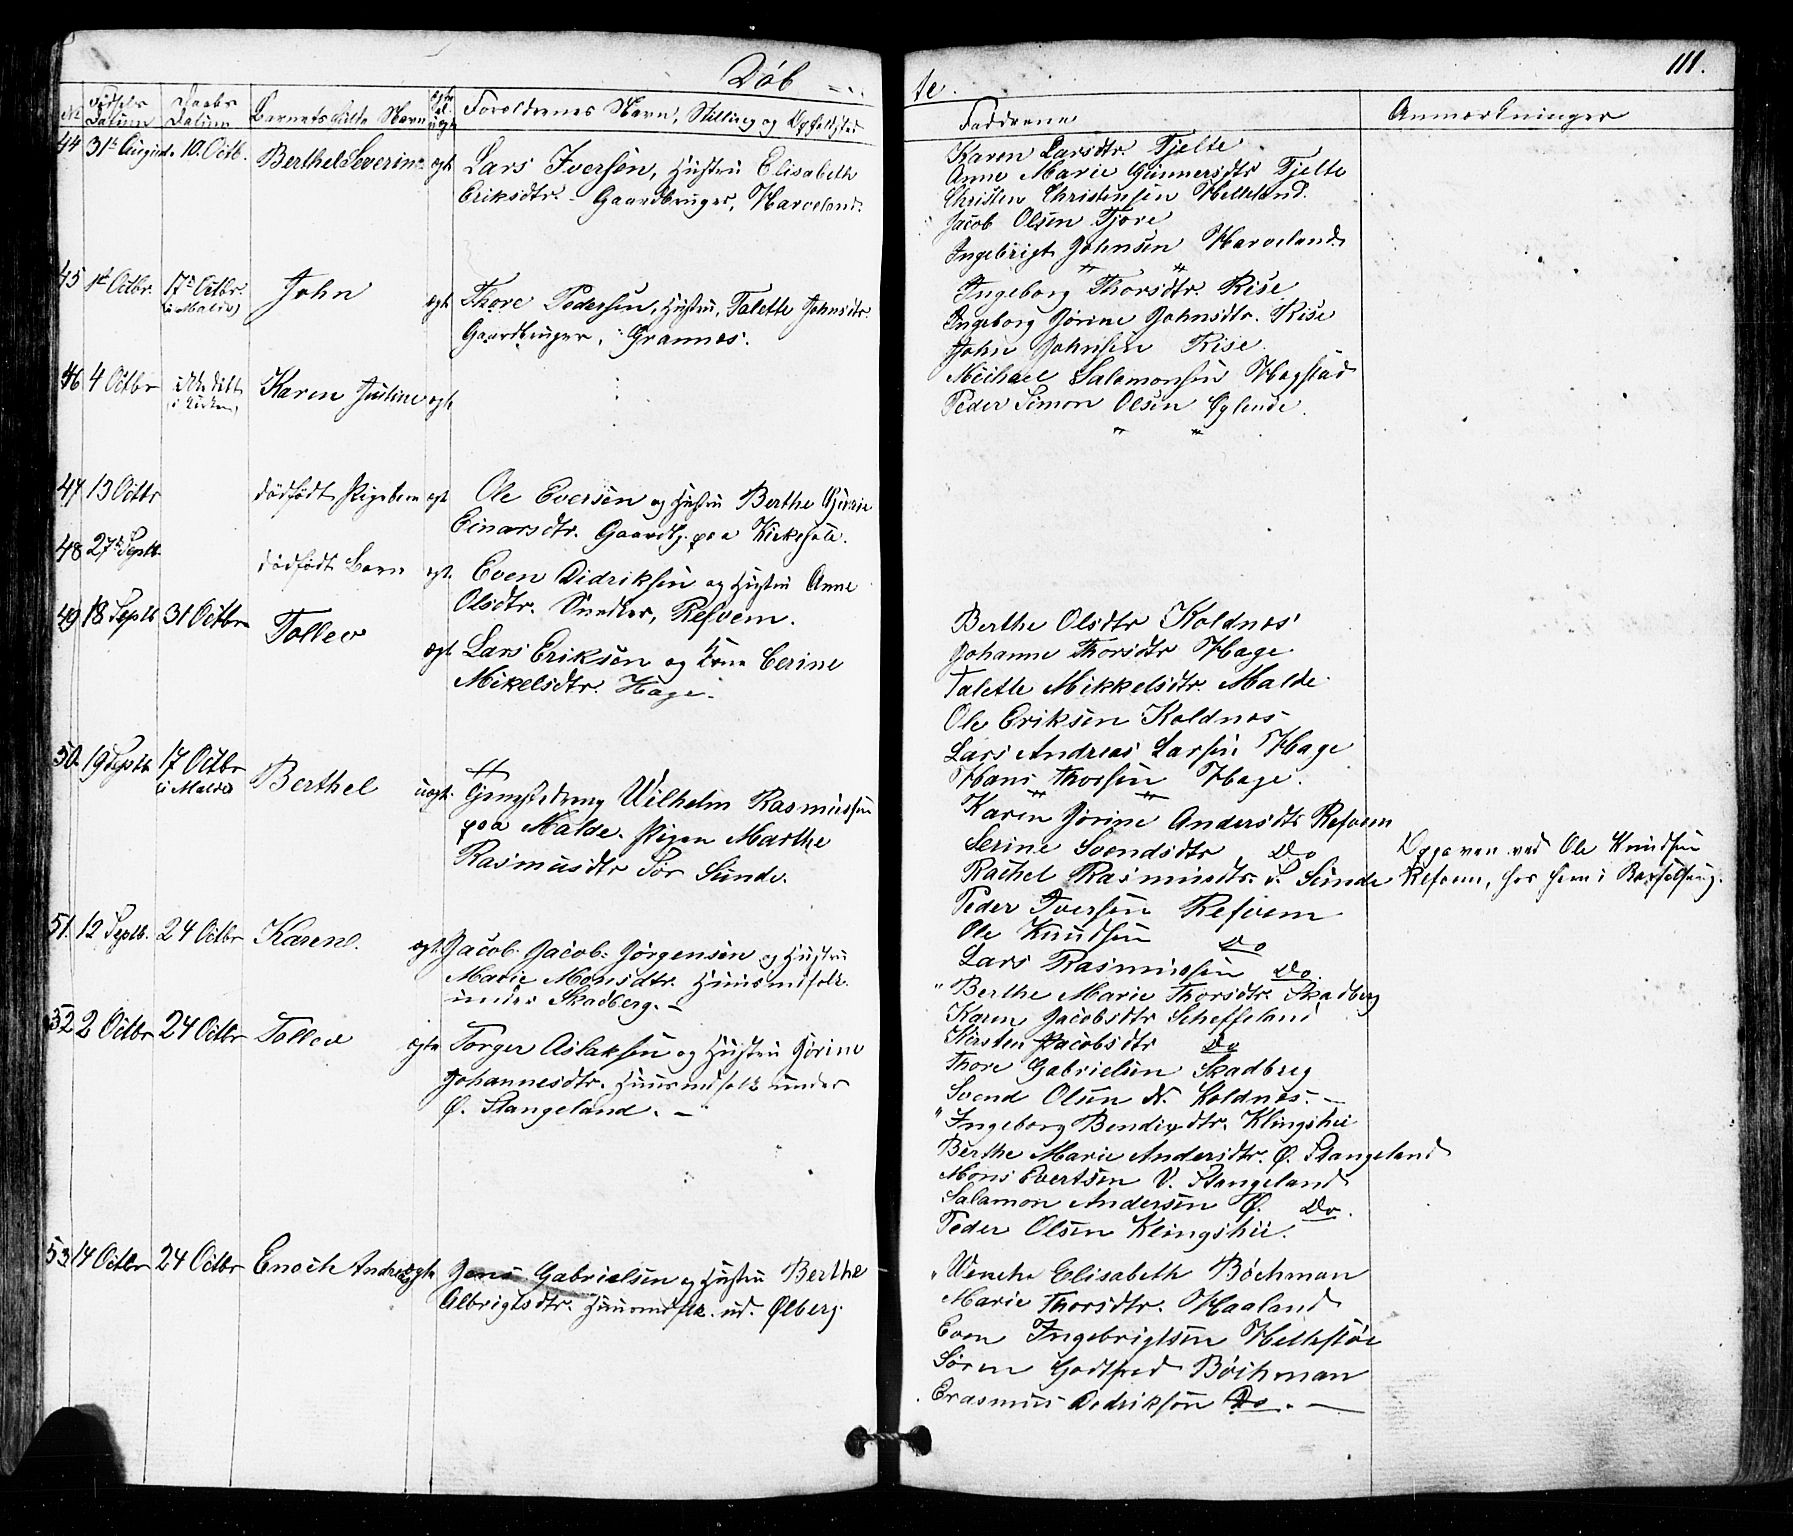 Döb
te.
111.
No
Födsels Datum
Daabs Datum
Barnets fulde Navn
Forældrenes Navn, Stilling og Opholdssted
Faddrene
Anmærkninger
44 31te August 10. Octb. Berthel Severin ægt. Lars Iversen, Hustru Elisabeth
Eriksdtr. Gaardbruger, Harveland.
Karen Larsdtr. Tjelte
Anne Marie Gunnersdtr Tjelte
Christen Christensen Helleland.
Jacob Olsen Tjore
Ingebrigt Johnsen Harveland
45 1t Octbr. 17de Octbr. (i Malde) John ægt. Thore Pedersen, Hustru, Talette Johnsdtr.
Gaardbruger, Grannes.
Ingeborg Thorsdtr. Risе
Ingeborg Jörine Johnsdtr. Rise
John Johnsen Rise
Michael Salamonsen Hogstad
Peder Simon Olsen
46 4 Octbr ikke döbt i Kirken, Karen Justine ægt.
47 13 Octbr dödfödt Pigebarn ægt Ole Eversen og Hustru Berthe
Einarsdtr. Gaardbg. paa Kirkesole.
48 27de Septb. dödfödt Barn ægt. Even Didriksen og Hustru Anne
Olsdtr. Snedker, Refvem.
49 18 Septb 31 Octbr Tollev ægt Lars Eriksen og Kone Cerine
Mikelsdtr. Hage.
Berthe Olsdtr Koldnes
Johanne Thorsdtr Hage
Talette Mikkelsdtr. Malde
Ole Eriksen Koldnes
Lars Andreas Larsen Hage
Hans Thorsen Hage.
50. 19 Septb. 17 Octbr (i Malde) Berthel uægt. Wilhelm Rasmussen
paa Malde. Pigen Marthe
Rasmusdtr Sör Sunde.
Karen Jörine Andersdtr Refvem
Serine Svendsdtr Do
Rachel Rasmusdtr. S. Sunde
Peder Iversen Refvem
Ole Knudsen Do
Lars Rasmussen Do.
Opgaven ved Ole Knudsen
Refvem, hos hem i Barselseng.
51. 12 Septb. 24 Octbr Karen ægt. Jacob Jacob: Jörgensen og Hustru
Marie Monsdtr. Huusmdfolk
under Skadberg. –
" Berthe Marie Thorsdtr. Skadberg
Karen Jacobsdtr Scheffeland
Kirsten Jacobsdtr Do
Thore Gabrielsen Skadberg
Svend Olsen N. Koldnes. –
52 2 Octbr 24 Octbr Tollev ægte Torger Aslaksen og Hustru Jörine
Johannesdtr. Huusmdfolk under
Ø. Stangeland. –
" Ingeborg Bendixdtr. Klingshei
Berthe Marie Andersdtr. Ø. Stangeland
Mons Evertsen V. Stangeland
Salamon Andersen Ø. Do.
Peder Olsen Klingshei.
53 14 Octbr 24 Octbr Enoch Andreas ægte Jens Gabrielsen og Hustru Berthe
Albrigtsdtr. Huusmdflk. ud. Ølberg
" Wenche Elisabeth Böchman
Marie Thorsdtr. Haaland
Even Ingebrigtsen Hellestöe
Sören Godtfred Böchman
Erasmus Dedriksen Do. –